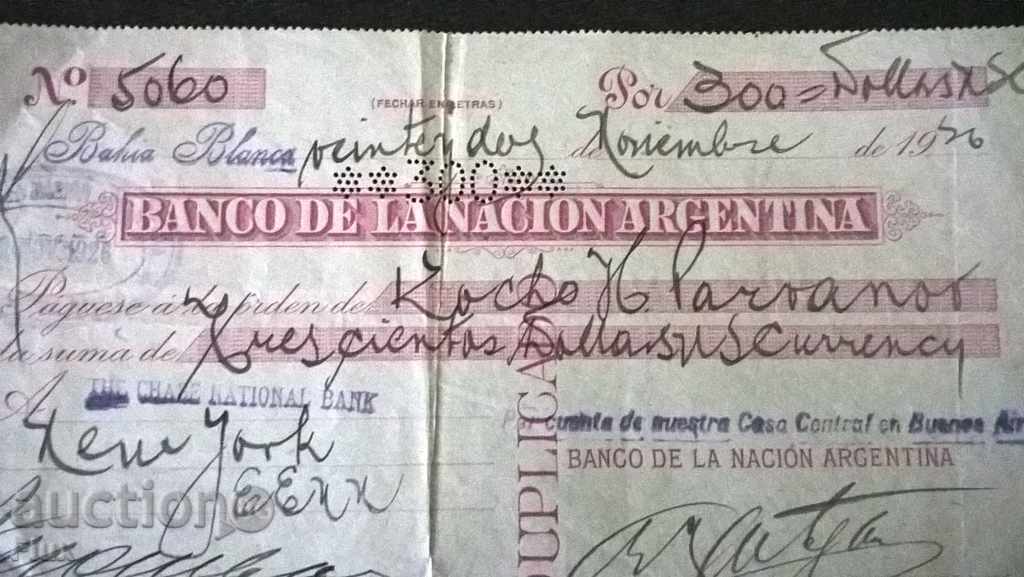 Nº 5060 Por 300= Dollars
(FECHAR EN LETRAS)
Bahia Blanca veinte y dos de Noviembre de 1926
**300**
BANCO DE LA NACION ARGENTINA
1926
Páguese á la orden de Kocho N. Parvanov
la suma de Trescientos Dollars US Currency
A THE CHASE NATIONAL BANK
Por cuenta de nuestra Casa Central en Buenos Air
New York
BANCO DE LA NACIÓN ARGENTINA
EEUU
DUPLICA
auction
Flux